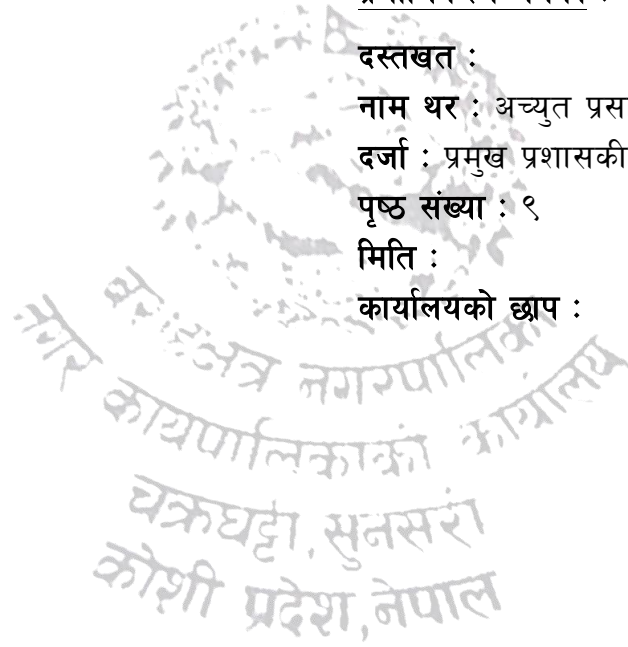 दस्तखत :
नाम थर : अच्युत प्रसा
दर्जा : प्रमुख प्रशासकी
पृष्ठ संख्या : ९
मिति :
कार्यालयको छाप :
नगरपालिका
नगर कार्यपालिकाको कार्यालय
चक्रघट्टी, सुनसरी
कोशी प्रदेश, नेपाल